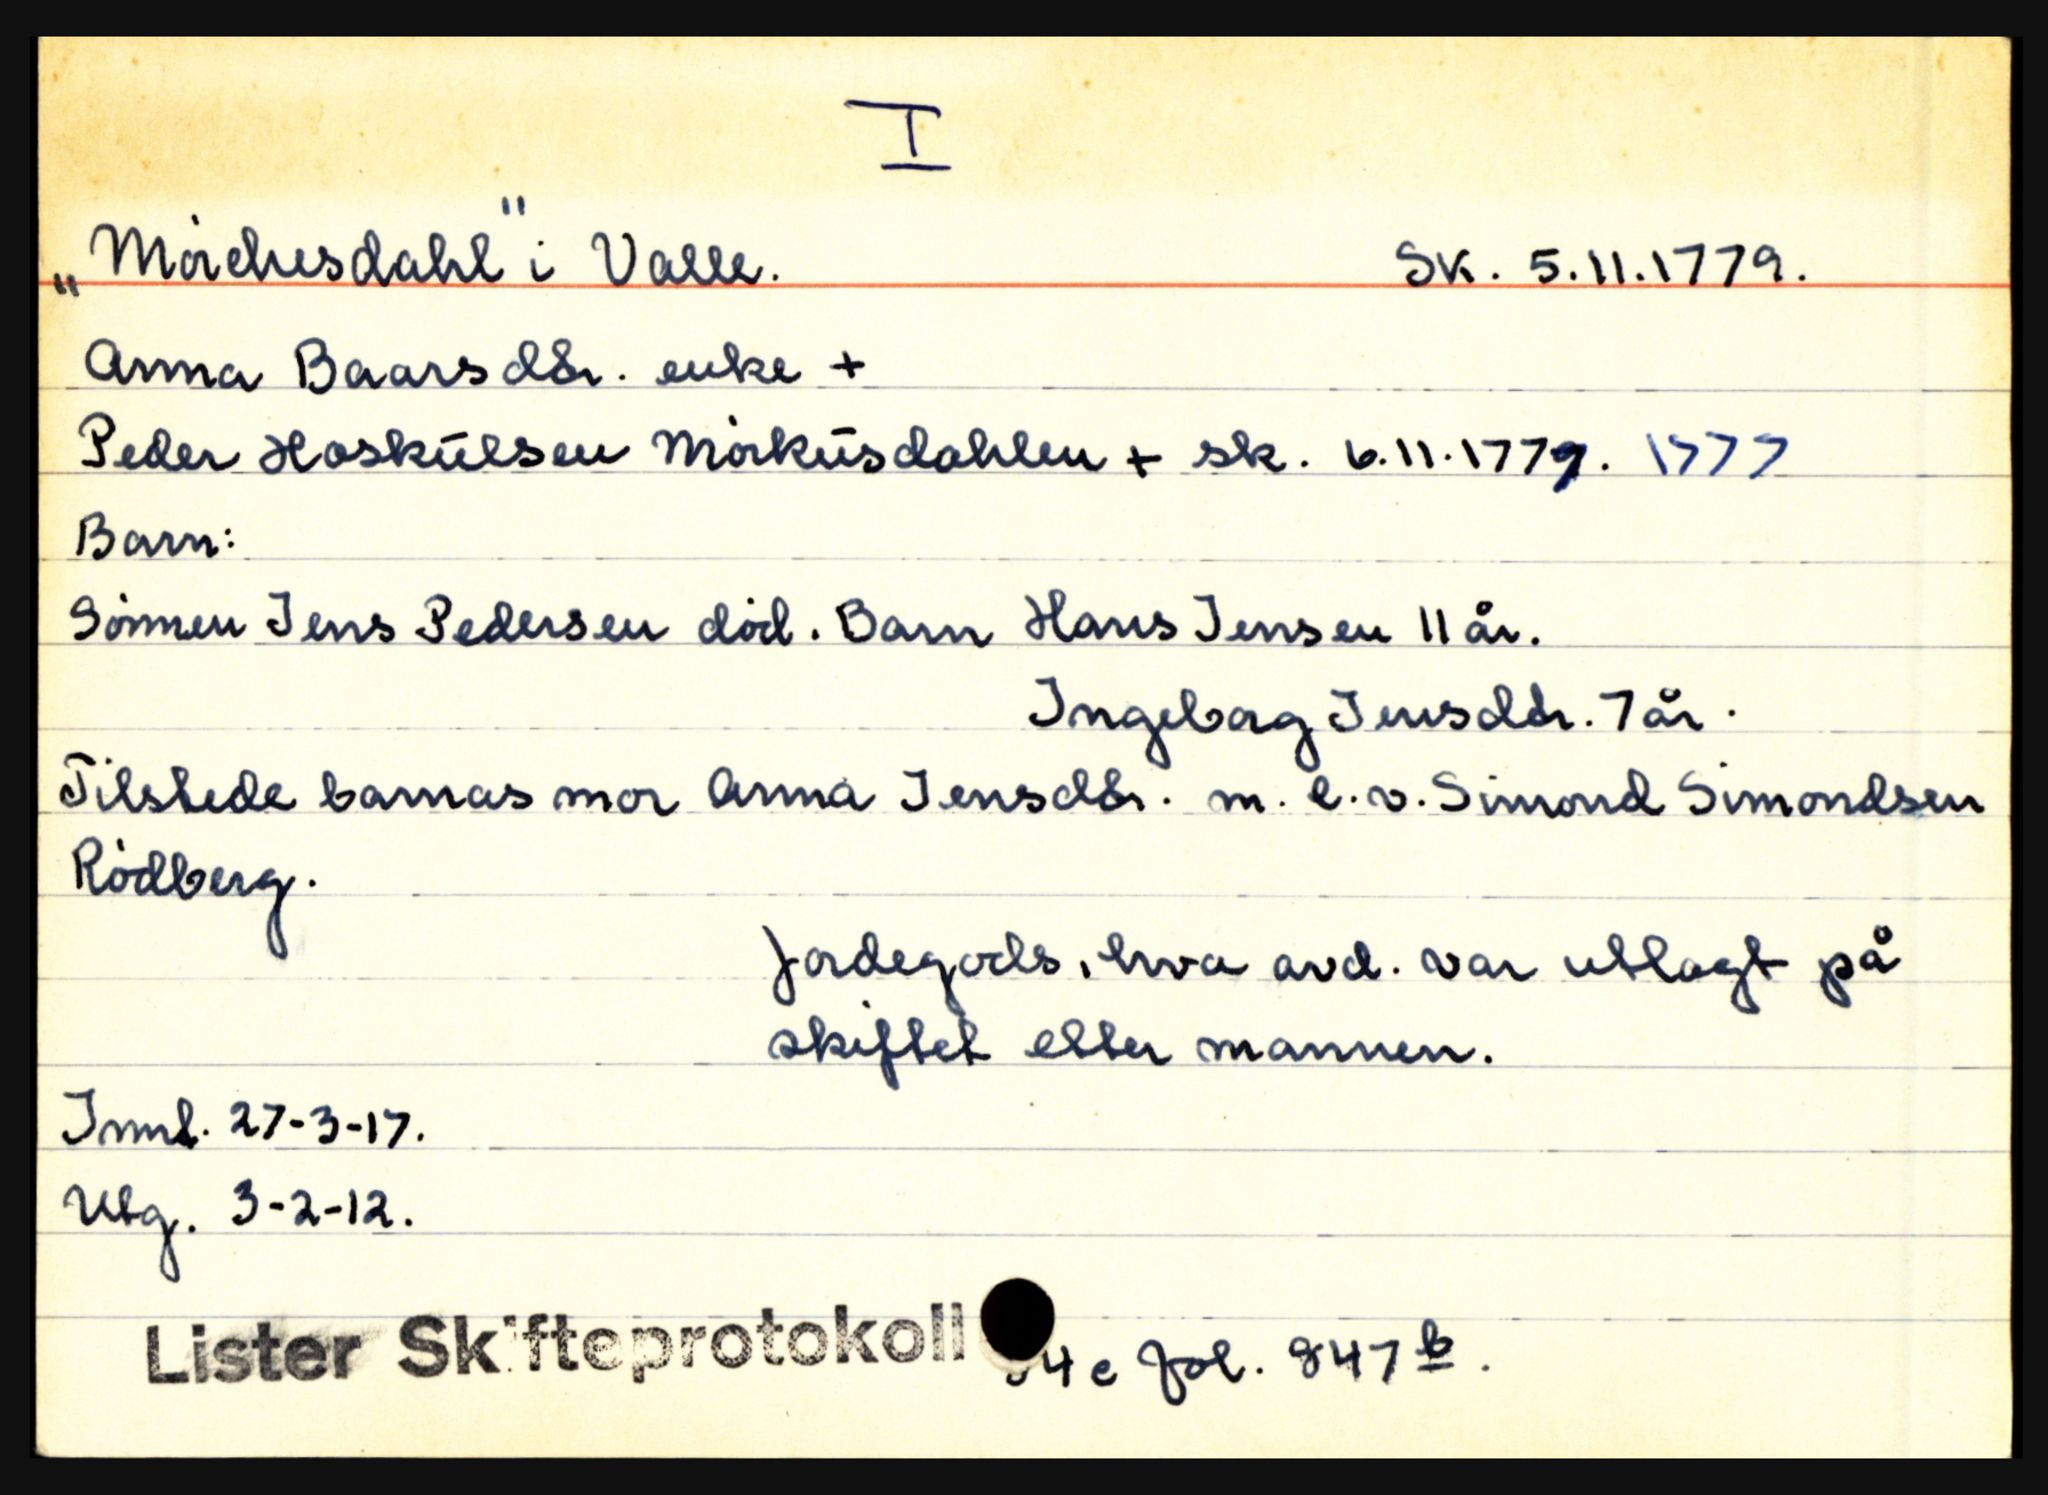 I
„Mörchesdahl" i Valle. Sk. 5.11.1779.
Anna Baarsdtr. enke +
Peder Hoskūlsen Mörkūsdahlen + sk. 6.11.1777. 1777
Barn:
Sönnen Jens Pedersen död. Barn Hans Jensen 11 år.
Ingeborg Jensdtr. 7 år.
Tilstede barnas mor Anna Jensdtr. m. l. v. Simond Simondsen
Rödberg.
Jordegods, hva avd. var utlagt på
skiftet etter mannen.
Innt. 27-3-17.
Utg. 3-2-12.
Lister Skifteprotokoll 4e fol. 847 b.